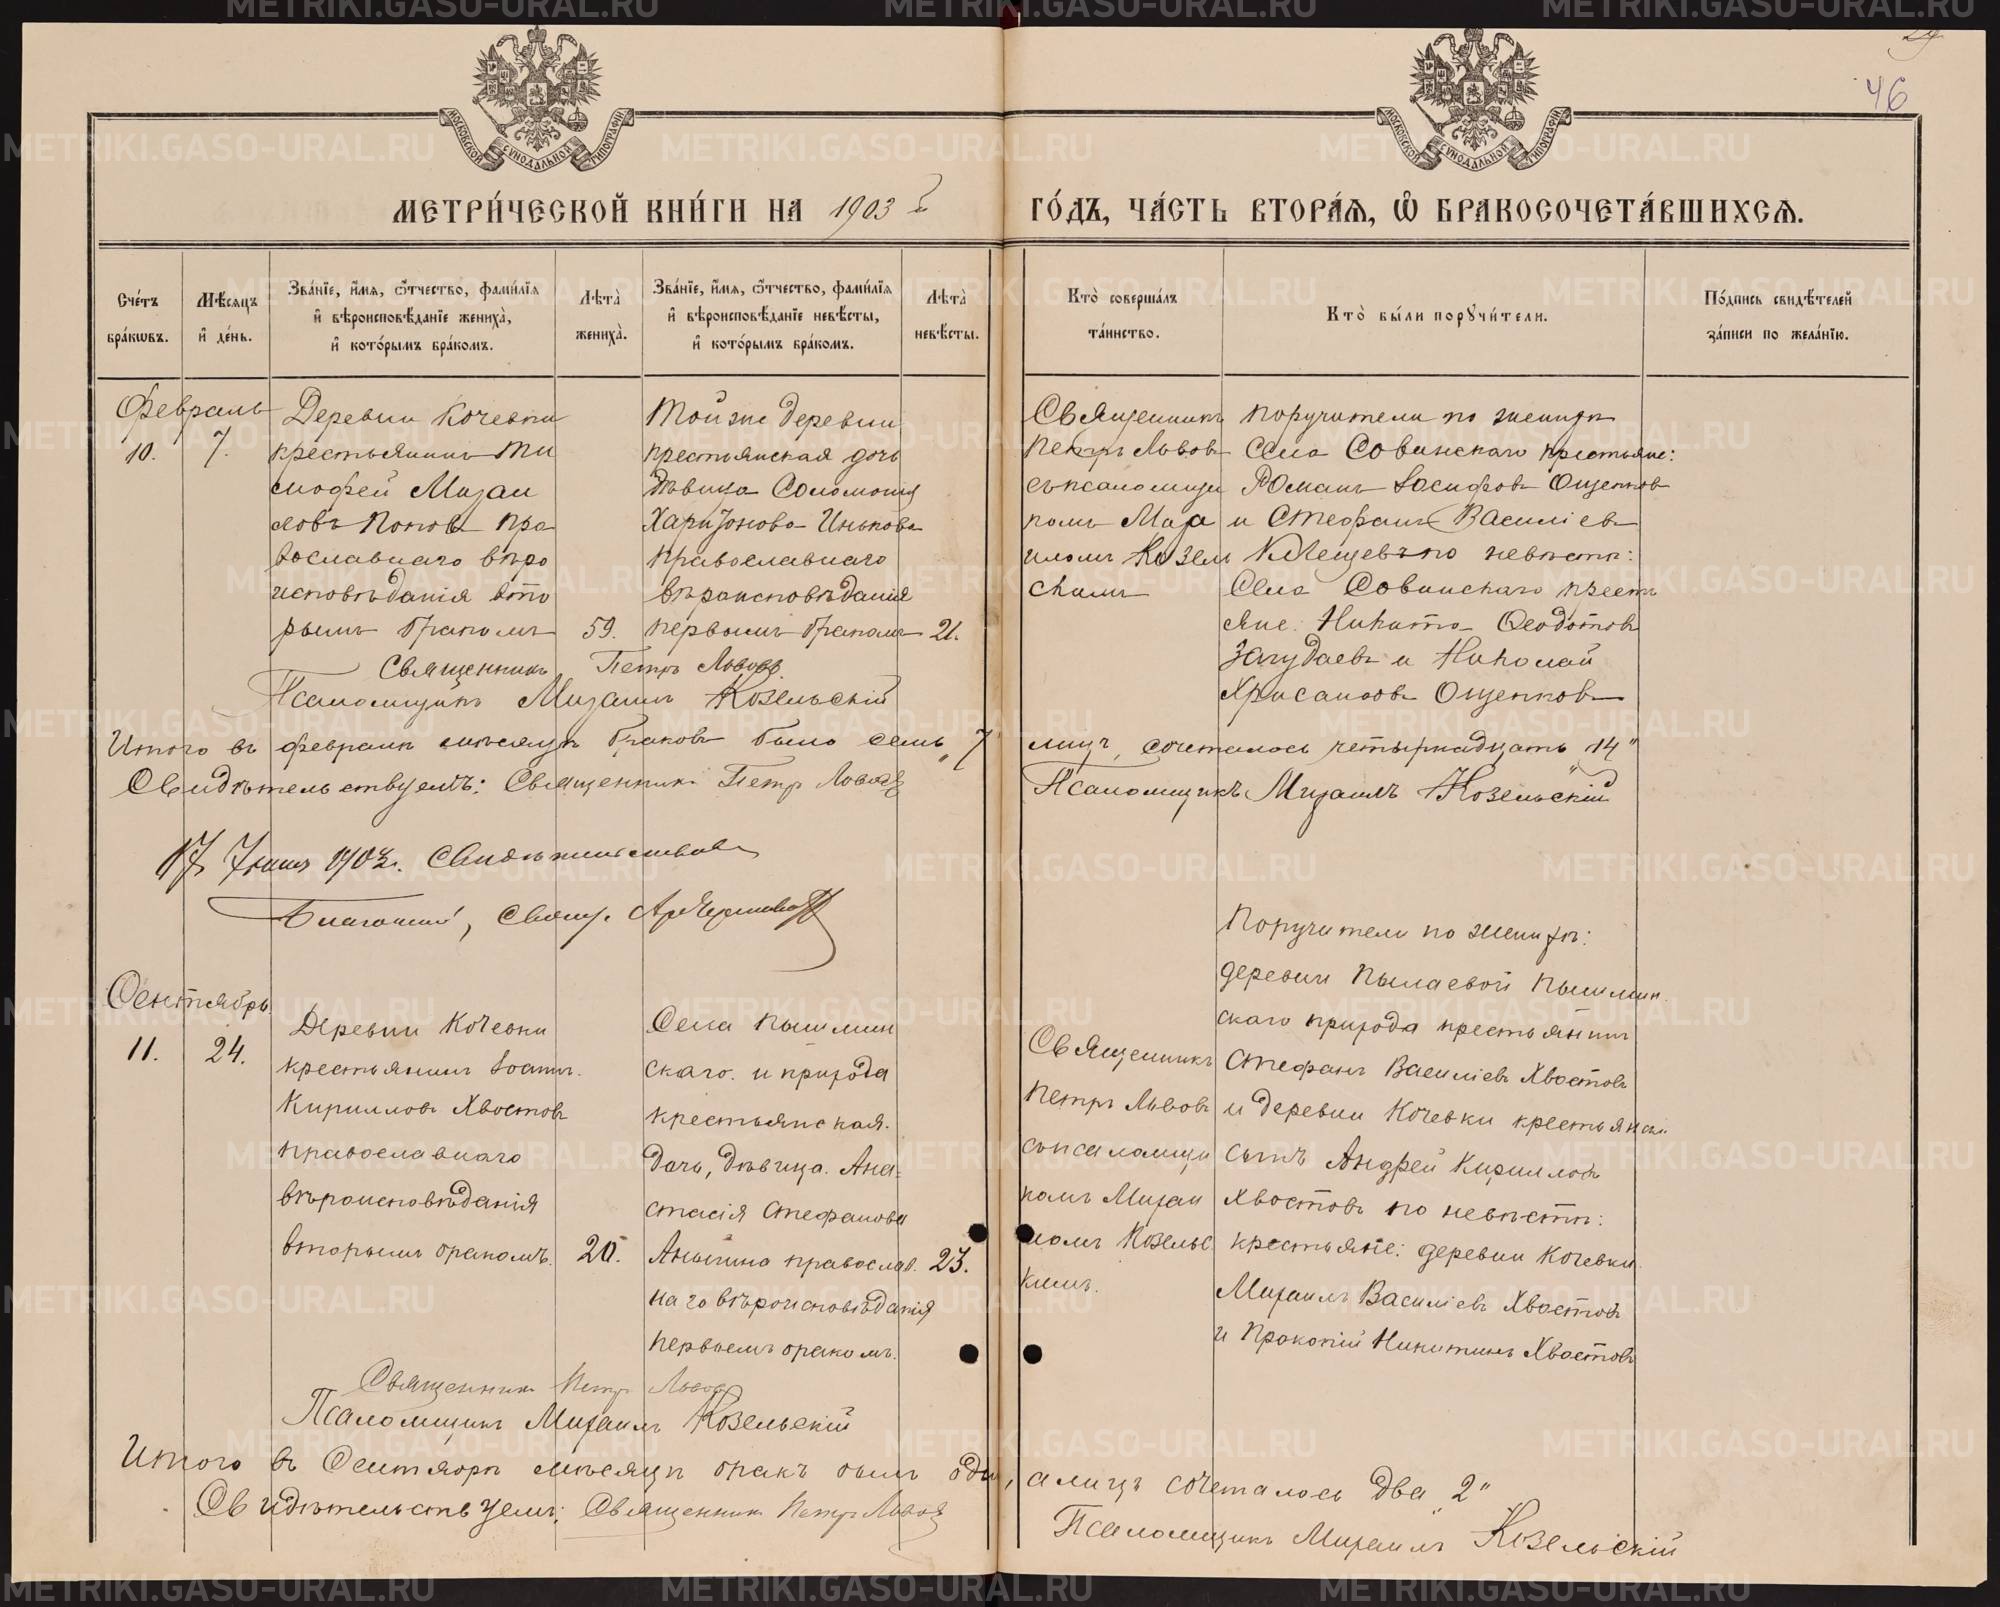 46
МОСКОВСКОЙ СѴНОДАЛЬНОЙ ТИПОГРАФІИ
МОСКОВСКОЙ СѴНОДАЛЬНОЙ ТИПОГРАФІИ
МЕТРИ́ЧЕСКОЙ КНИ́ГИ НА 1903 й ГО́ДЪ, ЧА́СТЬ ВТОРА́Ѧ, Ѽ БРАКОСОЧЕТА́ВШИХСѦ.
Сче́тъ бра́кѡвъ.
Мѣ́сяцъ и҆ де́нь.
Зва́нїе, и҆́мѧ, ѻ҆́тчество, фамилїѧ
и҆ вѣроисповѣ́данїе жениха̀,
и҆ кото́рымъ бра́комъ.
Лѣта̀ жениха̀.
Зва́нїе, и҆́мѧ, ѻ҆́тчество, фамилїѧ
и҆ вѣроисповѣ́данїе невѣ́сты,
и҆ кото́рымъ бра́комъ.
Лѣта̀ невѣ́сты.
Кто̀ соверша́лъ та́инство.
Кто̀ бы́ли порꙋчи́тели.
По́дпись свидѣ́телей
за́писи по жела́нїю.
Февраль
10.
7.
Деревни Кочевки
крестьянинъ Ти
мофей Михаи
ловъ Поповъ пра
вославнаго вѣро
исповѣданія вто
рымъ бракомъ
59.
Той же деревни
крестьянская дочь
дѣвица Соломонія
Харитонова Инькова
православнаго
вѣроисповѣданія
первымъ бракомъ
21.
Священникъ
Петръ Львовъ
съ псаломщи
комъ Миха
иломъ Козель
скимъ
Поручители по женихѣ
села Совинскаго крестьяне:
Романъ Іосифовъ Ощепков
и Стефанъ Василіевъ
Клещевъ по невѣстѣ:
села Совинскаго крестъ
яне: Никита Ѳеодотовъ
Загудаевъ и Николай
Хрисанѳовъ Ощепковъ
Священникъ Петръ Львовъ.
Псаломщикъ Михаилъ Козельскій
Итого въ февралѣ мѣсяцѣ браковъ было семь „7 лицъ, сочеталось четырнадцать „14"
Свидѣтельствуемъ: Священникъ Петръ Львовъ
Псаломщикъ Михаилъ Козельскій
17 Іюня 1903г. Свидѣтельствовалъ
Благочинный, Свящ.
Сентябрь.
11.
24.
Деревни Кочевки
крестьянинъ Іоаннъ.
Кирилловъ Хвостовъ
православнаго
вѣроисповѣданія
вторымъ бракомъ.
20.
Села Пышмин
скаго. и прихода
крестьянская.
дочь, дѣвица. Ана-
стасія Стефанова
Аньгина православ.
наго вѣроисповѣданія
первымъ бракомъ.
23.
Священникъ
Петръ Львовъ
съ псаломщи
комъ Михаи
ломъ Козельс
кимъ.
Поручители по женихѣ:
деревни Пылаевой Пышмин.
скаго прихода крестьянинъ
Стефанъ Василіевъ Хвостовъ
и деревни Кочевки крестьянскі
сынъ Андрей Кирилловъ
Хвостовъ по невѣстѣ:
крестьяне: деревни Кочевки
Михаилъ Василіевъ Хвостовъ
и Прокопій Никитинъ Хвостовъ
Священникъ Петръ Львовъ
Псаломщикъ Михаилъ Козельскій
Итого въ Сентябрѣ мѣсяцѣ бракъ былъ оди, а лицъ сочеталось два „2"
Свидѣтельствуемъ: Священникъ Петръ Львовъ
Псаломщикъ Михаилъ Козельскій
METRIKI.GASO-URAL.RU